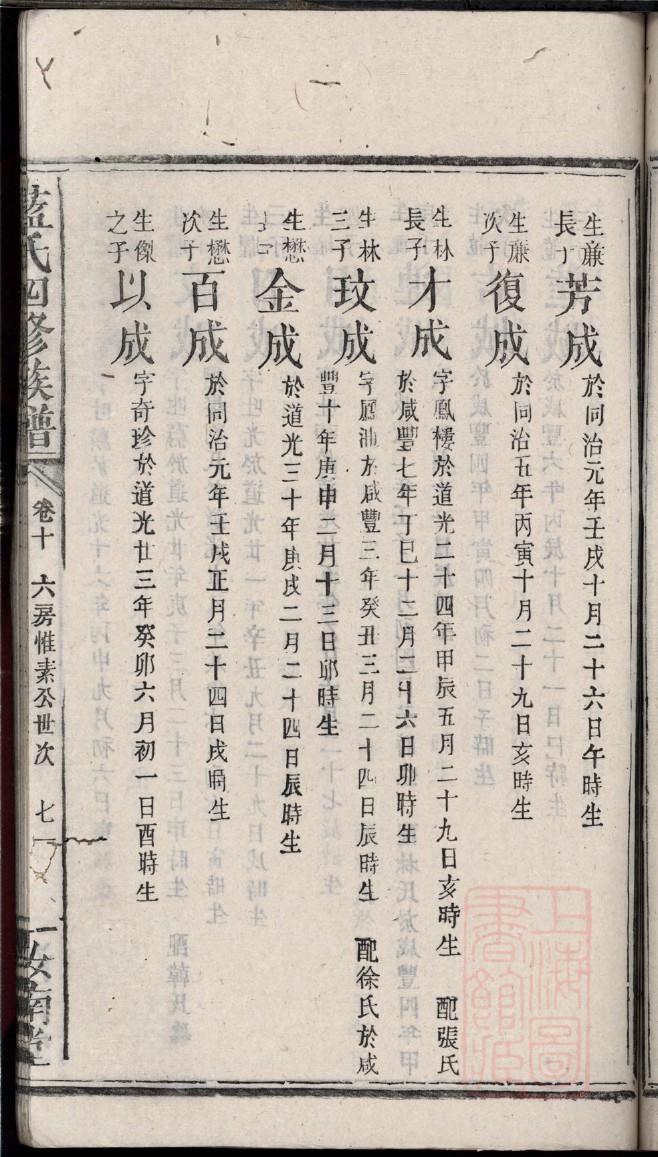 生亷長子芳成於同治元年壬戌十月二十六日午時生
生亷次子復成於同治五年丙寅十月二十九日亥時生
生林長子才成字鳳樓於道光二十四年甲辰五月二十九日亥時生 配張氏
於咸豐七年丁巳十二月二十六日卯時生
生林三子玟成字鳳浦於咸豐三年癸丑三月二十四日辰時生 配徐氏於咸
豐十年庚申二月十三日卯時生
生懋 金成於道光三十年庚戌二月二十四日辰時生
生懋次子百成於同治元年壬戌正月二十四日戌時生
生傑之子以成字奇珍於道光廿三年癸卯六月初一日酉時生
藍氏四修族譜 卷十 六房惟素公世次 七 汝南堂
上海圖書館藏